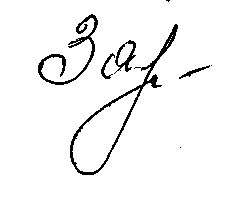 Зар-